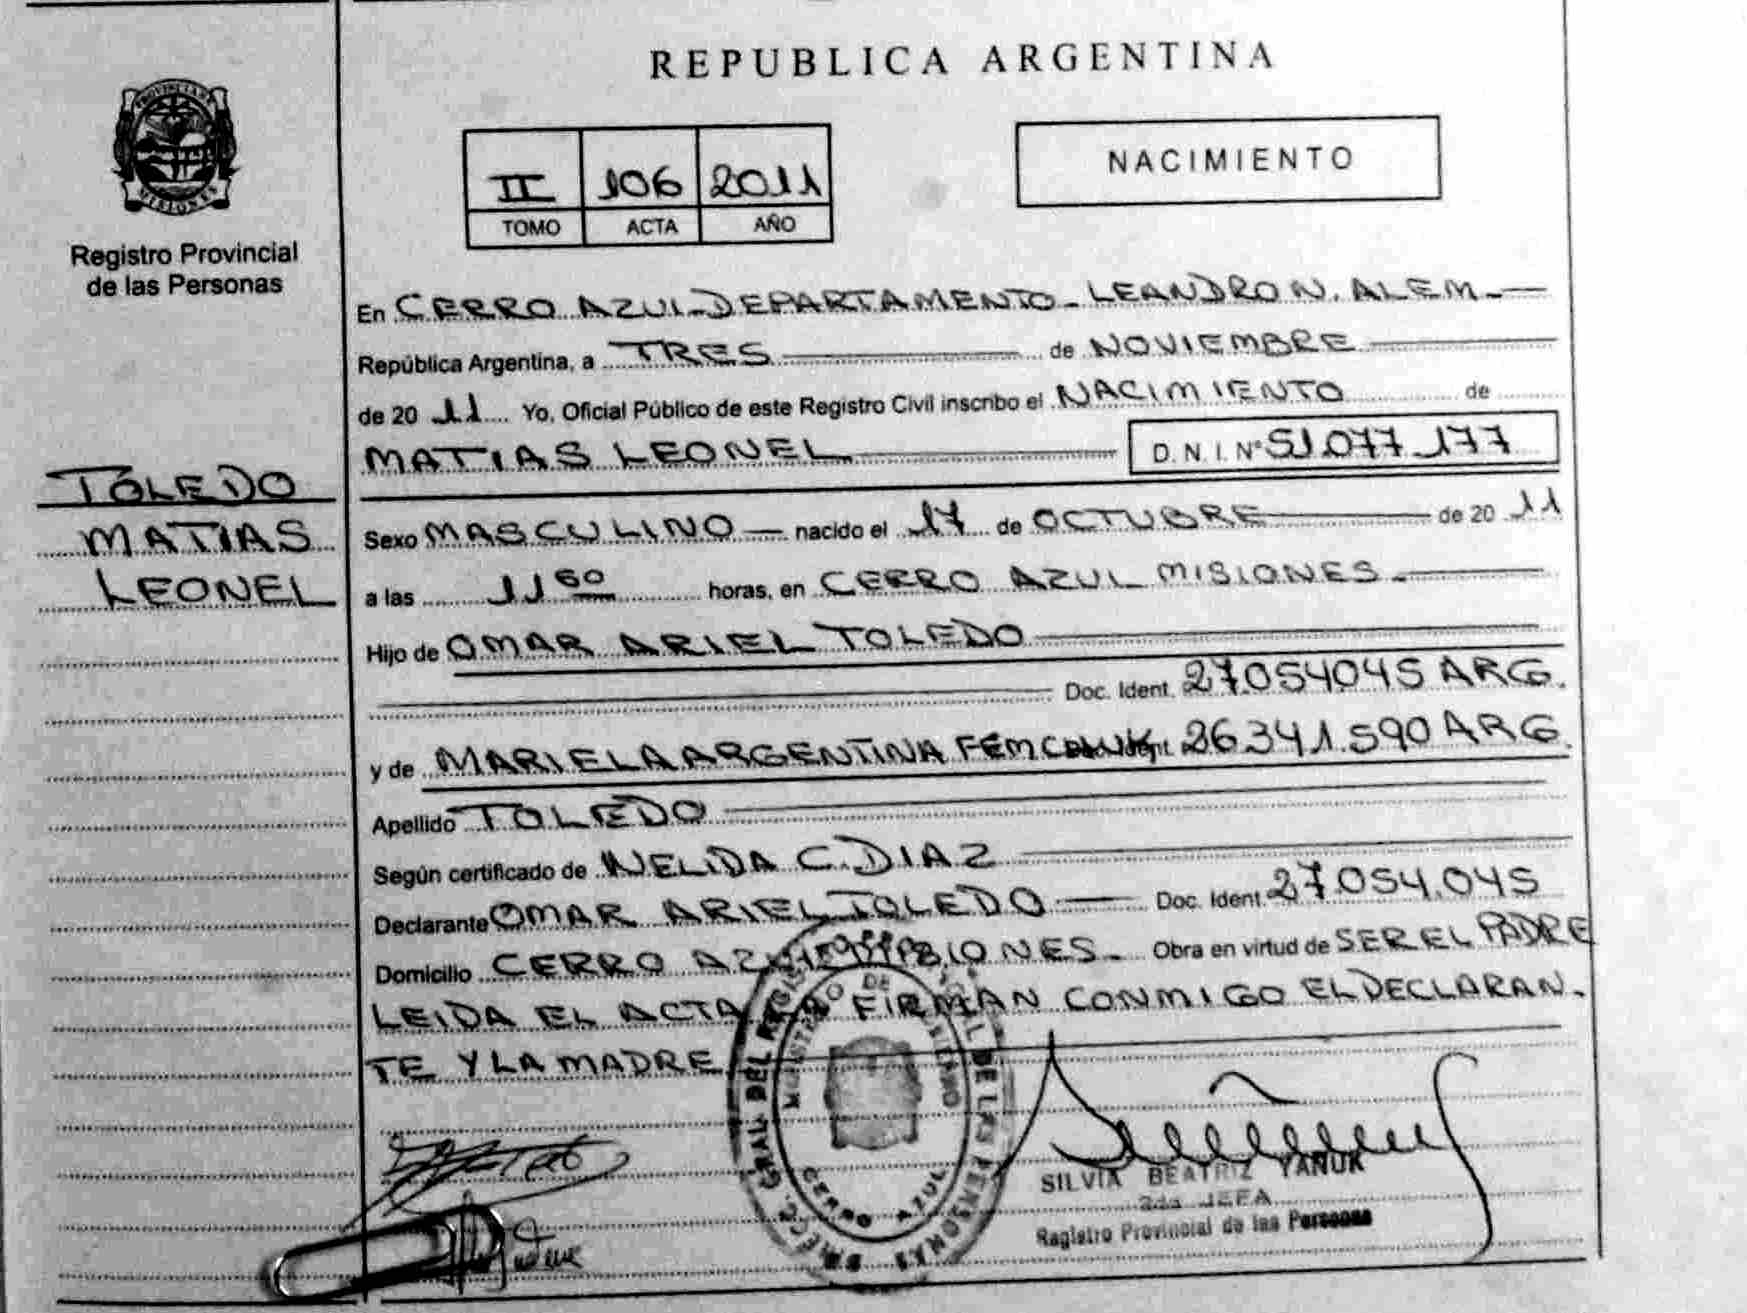 REPUBLICA ARGENTINA
PROVINCIA DE
MISIONES
Registro Provincial
de las Personas
II 106 2011
TOMO ACTA AÑO
NACIMIENTO
TOLEDO
MATIAS
LEONEL
En CERRO AZUL-DEPARTAMENTO-LEANDRO N. ALEM-
República Argentina, a TRES de NOVIEMBRE
de 2011 Yo, Oficial Público de este Registro Civil inscribo el NACIMIENTO de
MATIAS LEONEL D.N.I. Nº 51.077.177
Sexo MASCULINO nacido el 17 de OCTUBRE de 2011
a las 11 horas, en CERRO AZUL MISIONES.
Hijo de OMAR ARIEL TOLEDO
Doc. Ident. 27054045 ARG.
y de MARIELA ARGENTINA 26.341.590 ARG.
Apellido TOLEDO
Según certificado de NELIDA C. DIAZ
Declarante OMAR ARIEL TOLEDO Doc. Ident. 27.054.045
Domicilio CERRO AZUL MISIONES. Obra en virtud de SER EL PADRE
LEIDA EL ACTA LA FIRMAN CONMIGO EL DECLARAN-
TE Y LA MADRE
CERRO AZUL
SILVIA BEATRIZ YANUK
2da JEFA
Registro Provincial de las Personas